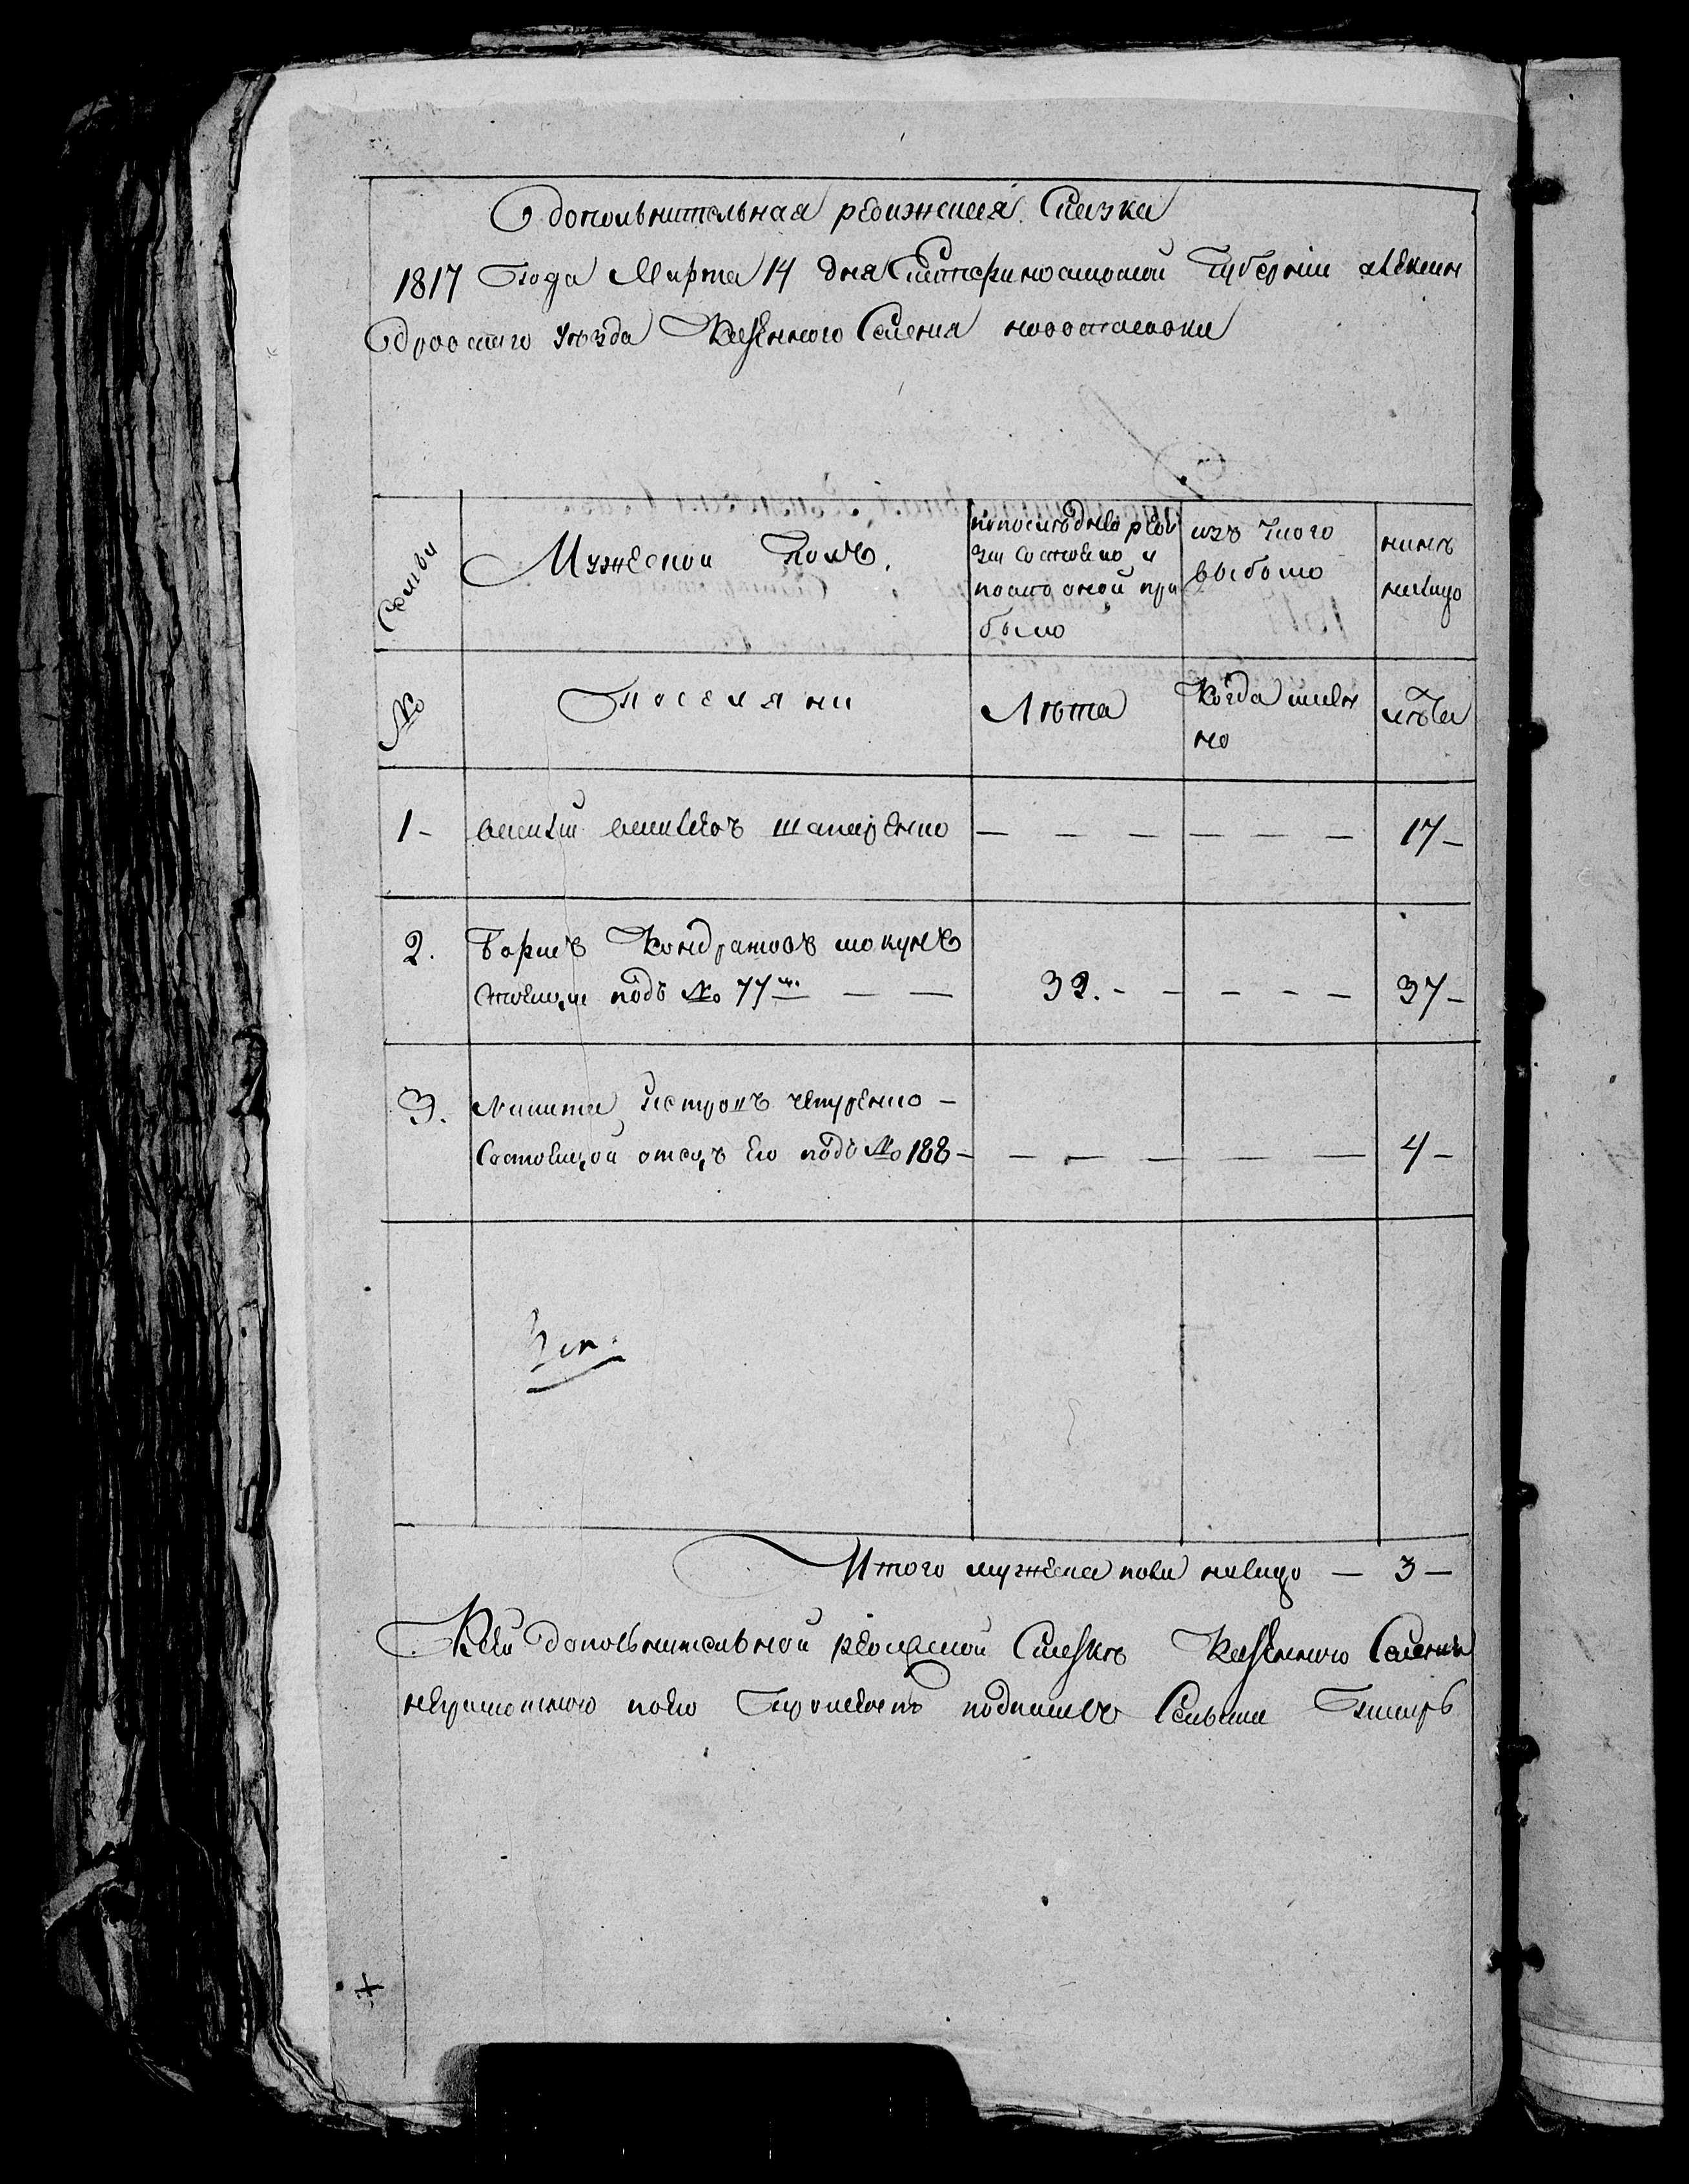 дополнительная ревижская Сказка
1817 Года Марта 14 дня Екатеринославской Губернии алексан
дровскаго уезда Казенного Селения
Семьи
Мужеской полъ.
попоследней реви
зи состояло и
после оной при
было
изъ того
выбыло
ныне
налицо
№
поселяни
Лѣта
Когда имен
но
лѣта
1 - василий василиевъ шапаренко — — — — — — 17 -
2. Борисъ Кондратовъ
стоящи подъ № 77м — — 32. - - - - - 37 -
3. Никита петровъ —
Состоящой отецъ его подъ № 188 - — — — — — 4 -
Итого мужеска пола налицо — 3 —
Ксей дополнительной ревиской Сказке Казенного Селения
подписалъ Сельски писарь